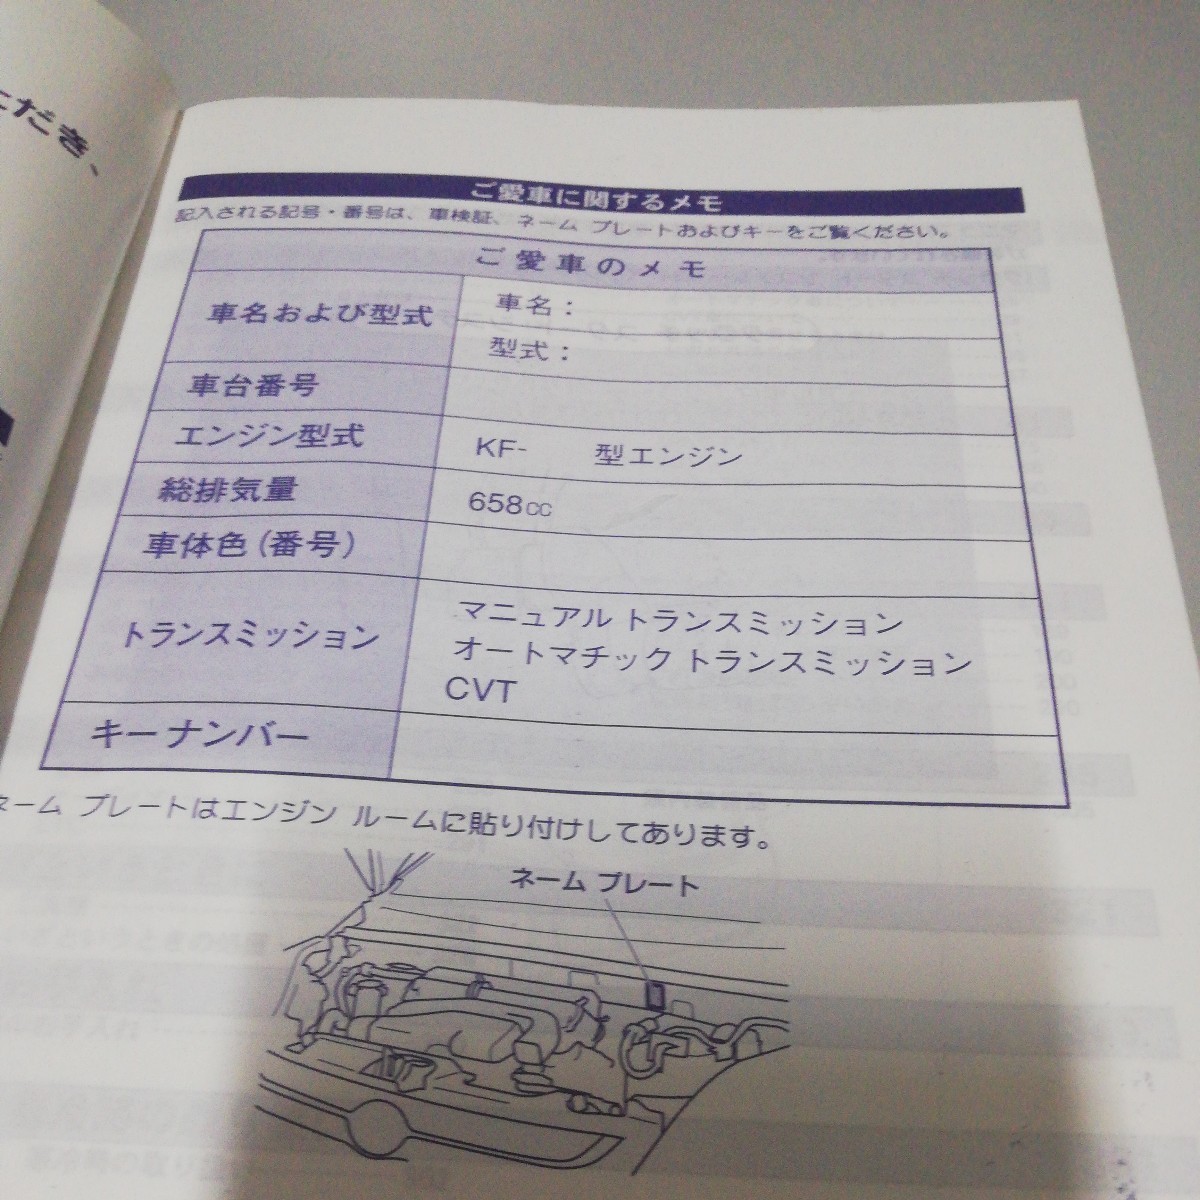 ただき、
ご愛車に関するメモ
記入される記号・番号は、車検証、ネーム プレートおよびキーをご覧ください。
ご愛車のメモ
車名および型式
車名：
型式：
車台番号
エンジン型式
KF- 型エンジン
総排気量
658cc
車体色(番号)
トランスミッション
マニュアル トランスミッション
オートマチック トランスミッション
CVT
キーナンバー
ネーム プレートはエンジン ルームに貼り付けしてあります。
ネーム プレート